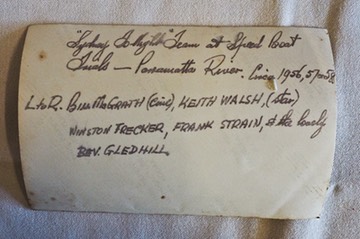 "Sydney To-Night" Team at Speed Boat
Trials — Parramatta River. Circa 1956, 57 or 58
L to R. Bill McGrath (Cine), KEITH WALSH, (Star)
WINSTON TRECKER, FRANK STRAIN, & the lovely
BEV. GLEDHILL